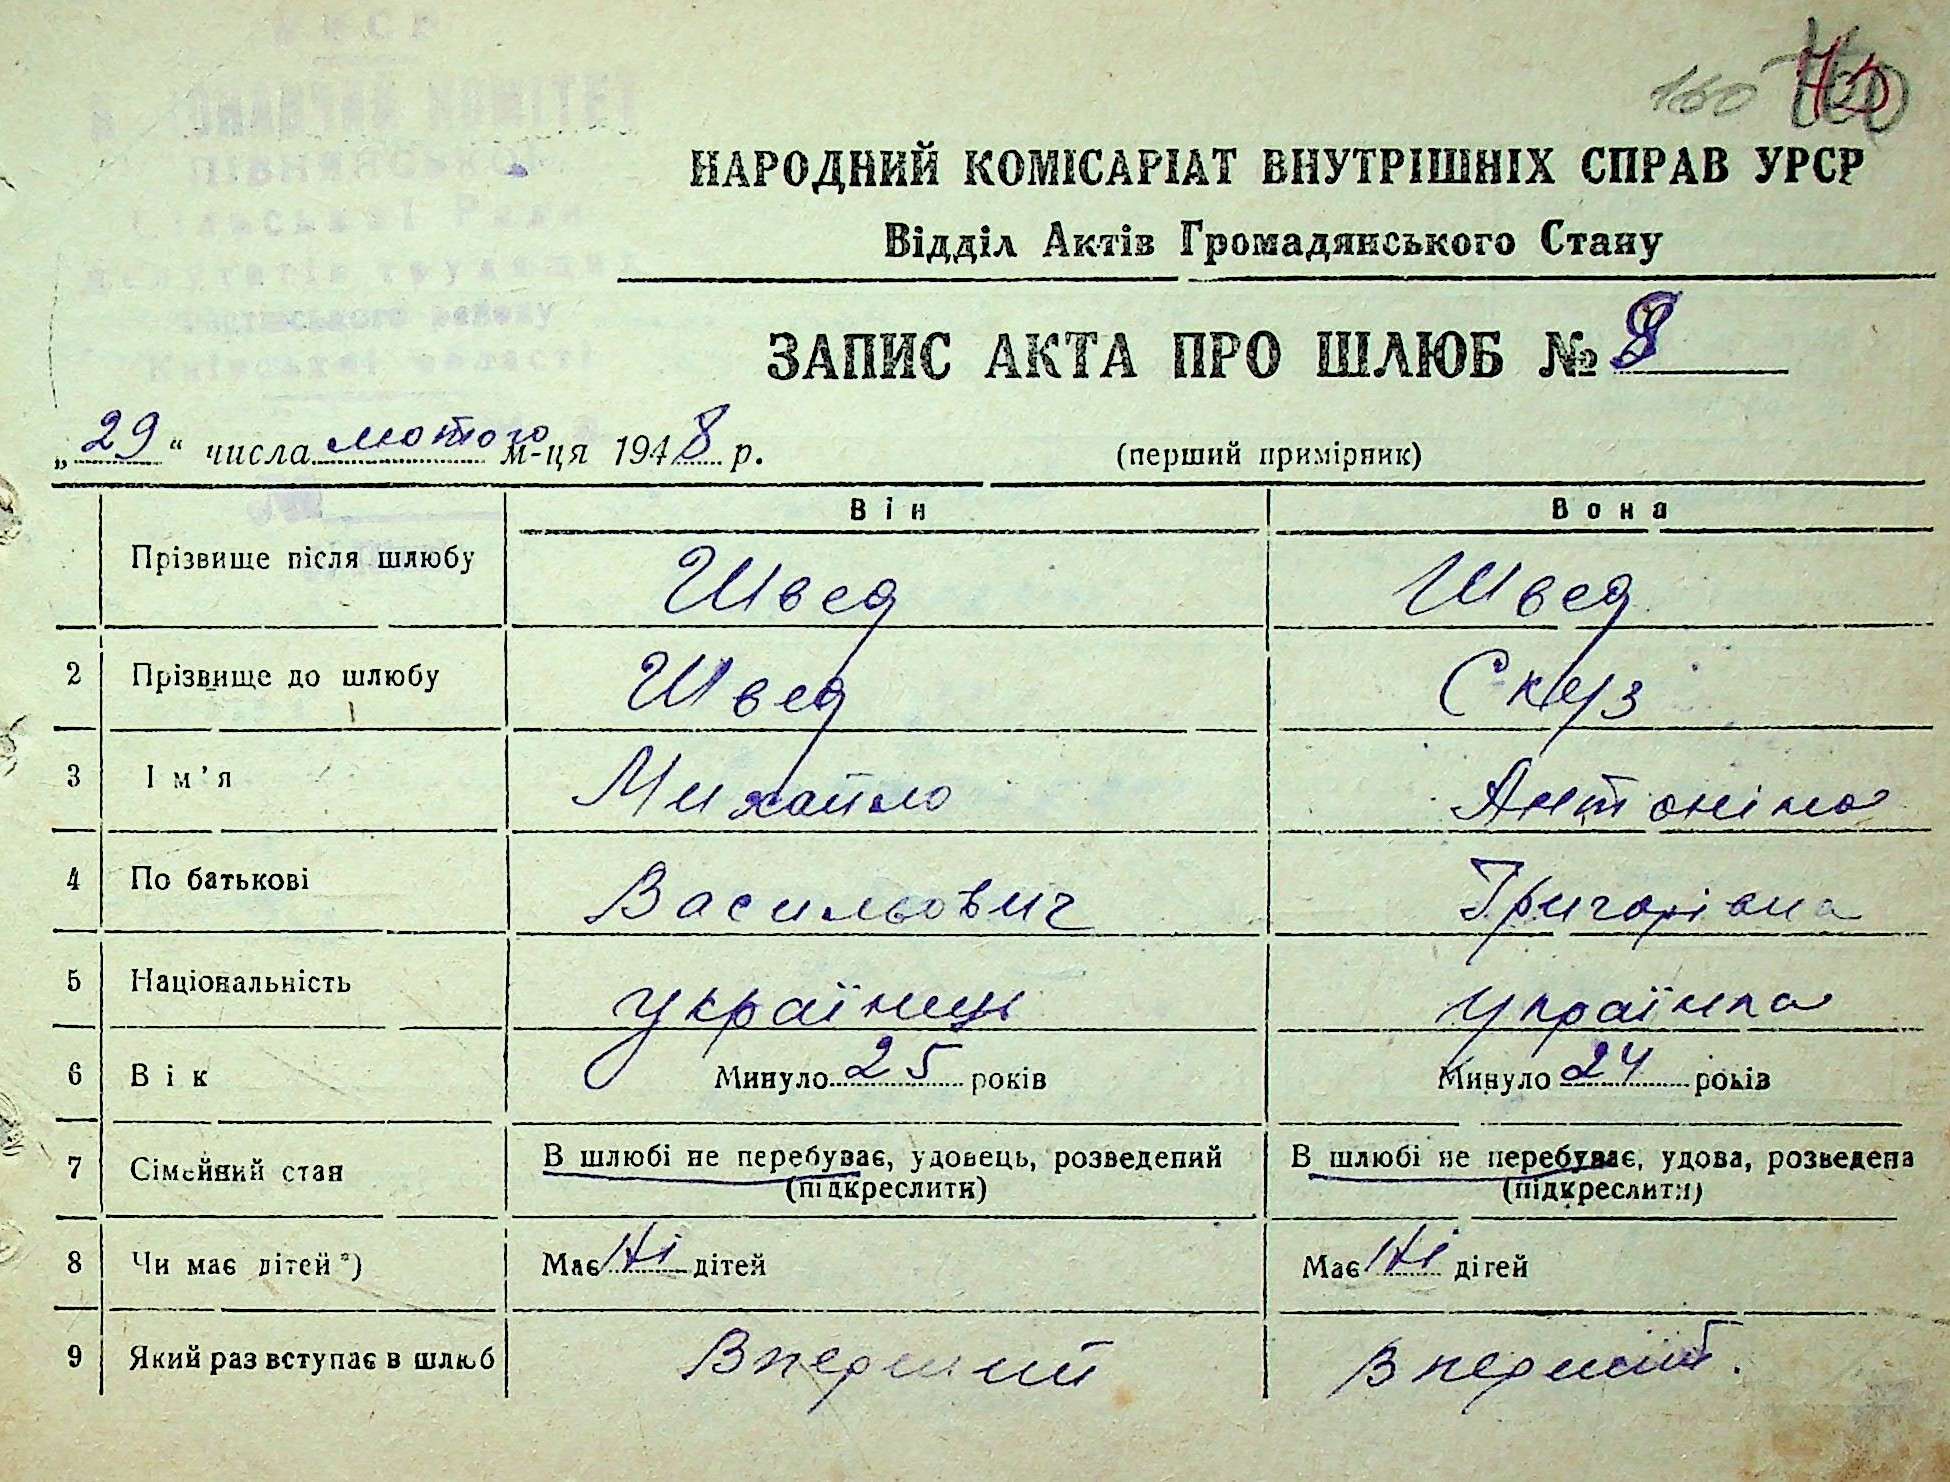 УРСР
ВИКОНАВЧИЙ КОМІТЕТ
Півнинської
Сільської Ради
депутатів трудящих
Київської області
160
НАРОДНИЙ КОМІСАРІАТ ВНУТРІШНІХ СПРАВ УРСР
Відділ Актів Громадянського Стану
ЗАПИС АКТА ПРО ШЛЮБ № 8
„29“ числа лютого м-ця 1948 р. (перший примірник)
Він Вона
Прізвище після шлюбу Швед Швед
2 Прізвище до шлюбу Швед Скуз
3 Ім'я Михайло Антоніна
4 По батькові Васильович Григорівна
5 Національність українець українка
6 Вік Минуло 25 років Минуло 24 років
7 Сімейний стан В шлюбі не перебуває, удовець, розведений (підкреслити) В шлюбі не перебуває, удова, розведена (підкреслити)
8 Чи має дітей *) Має Ні дітей Має Ні дітей
9 Який раз вступає в шлюб Вперший Вперший.